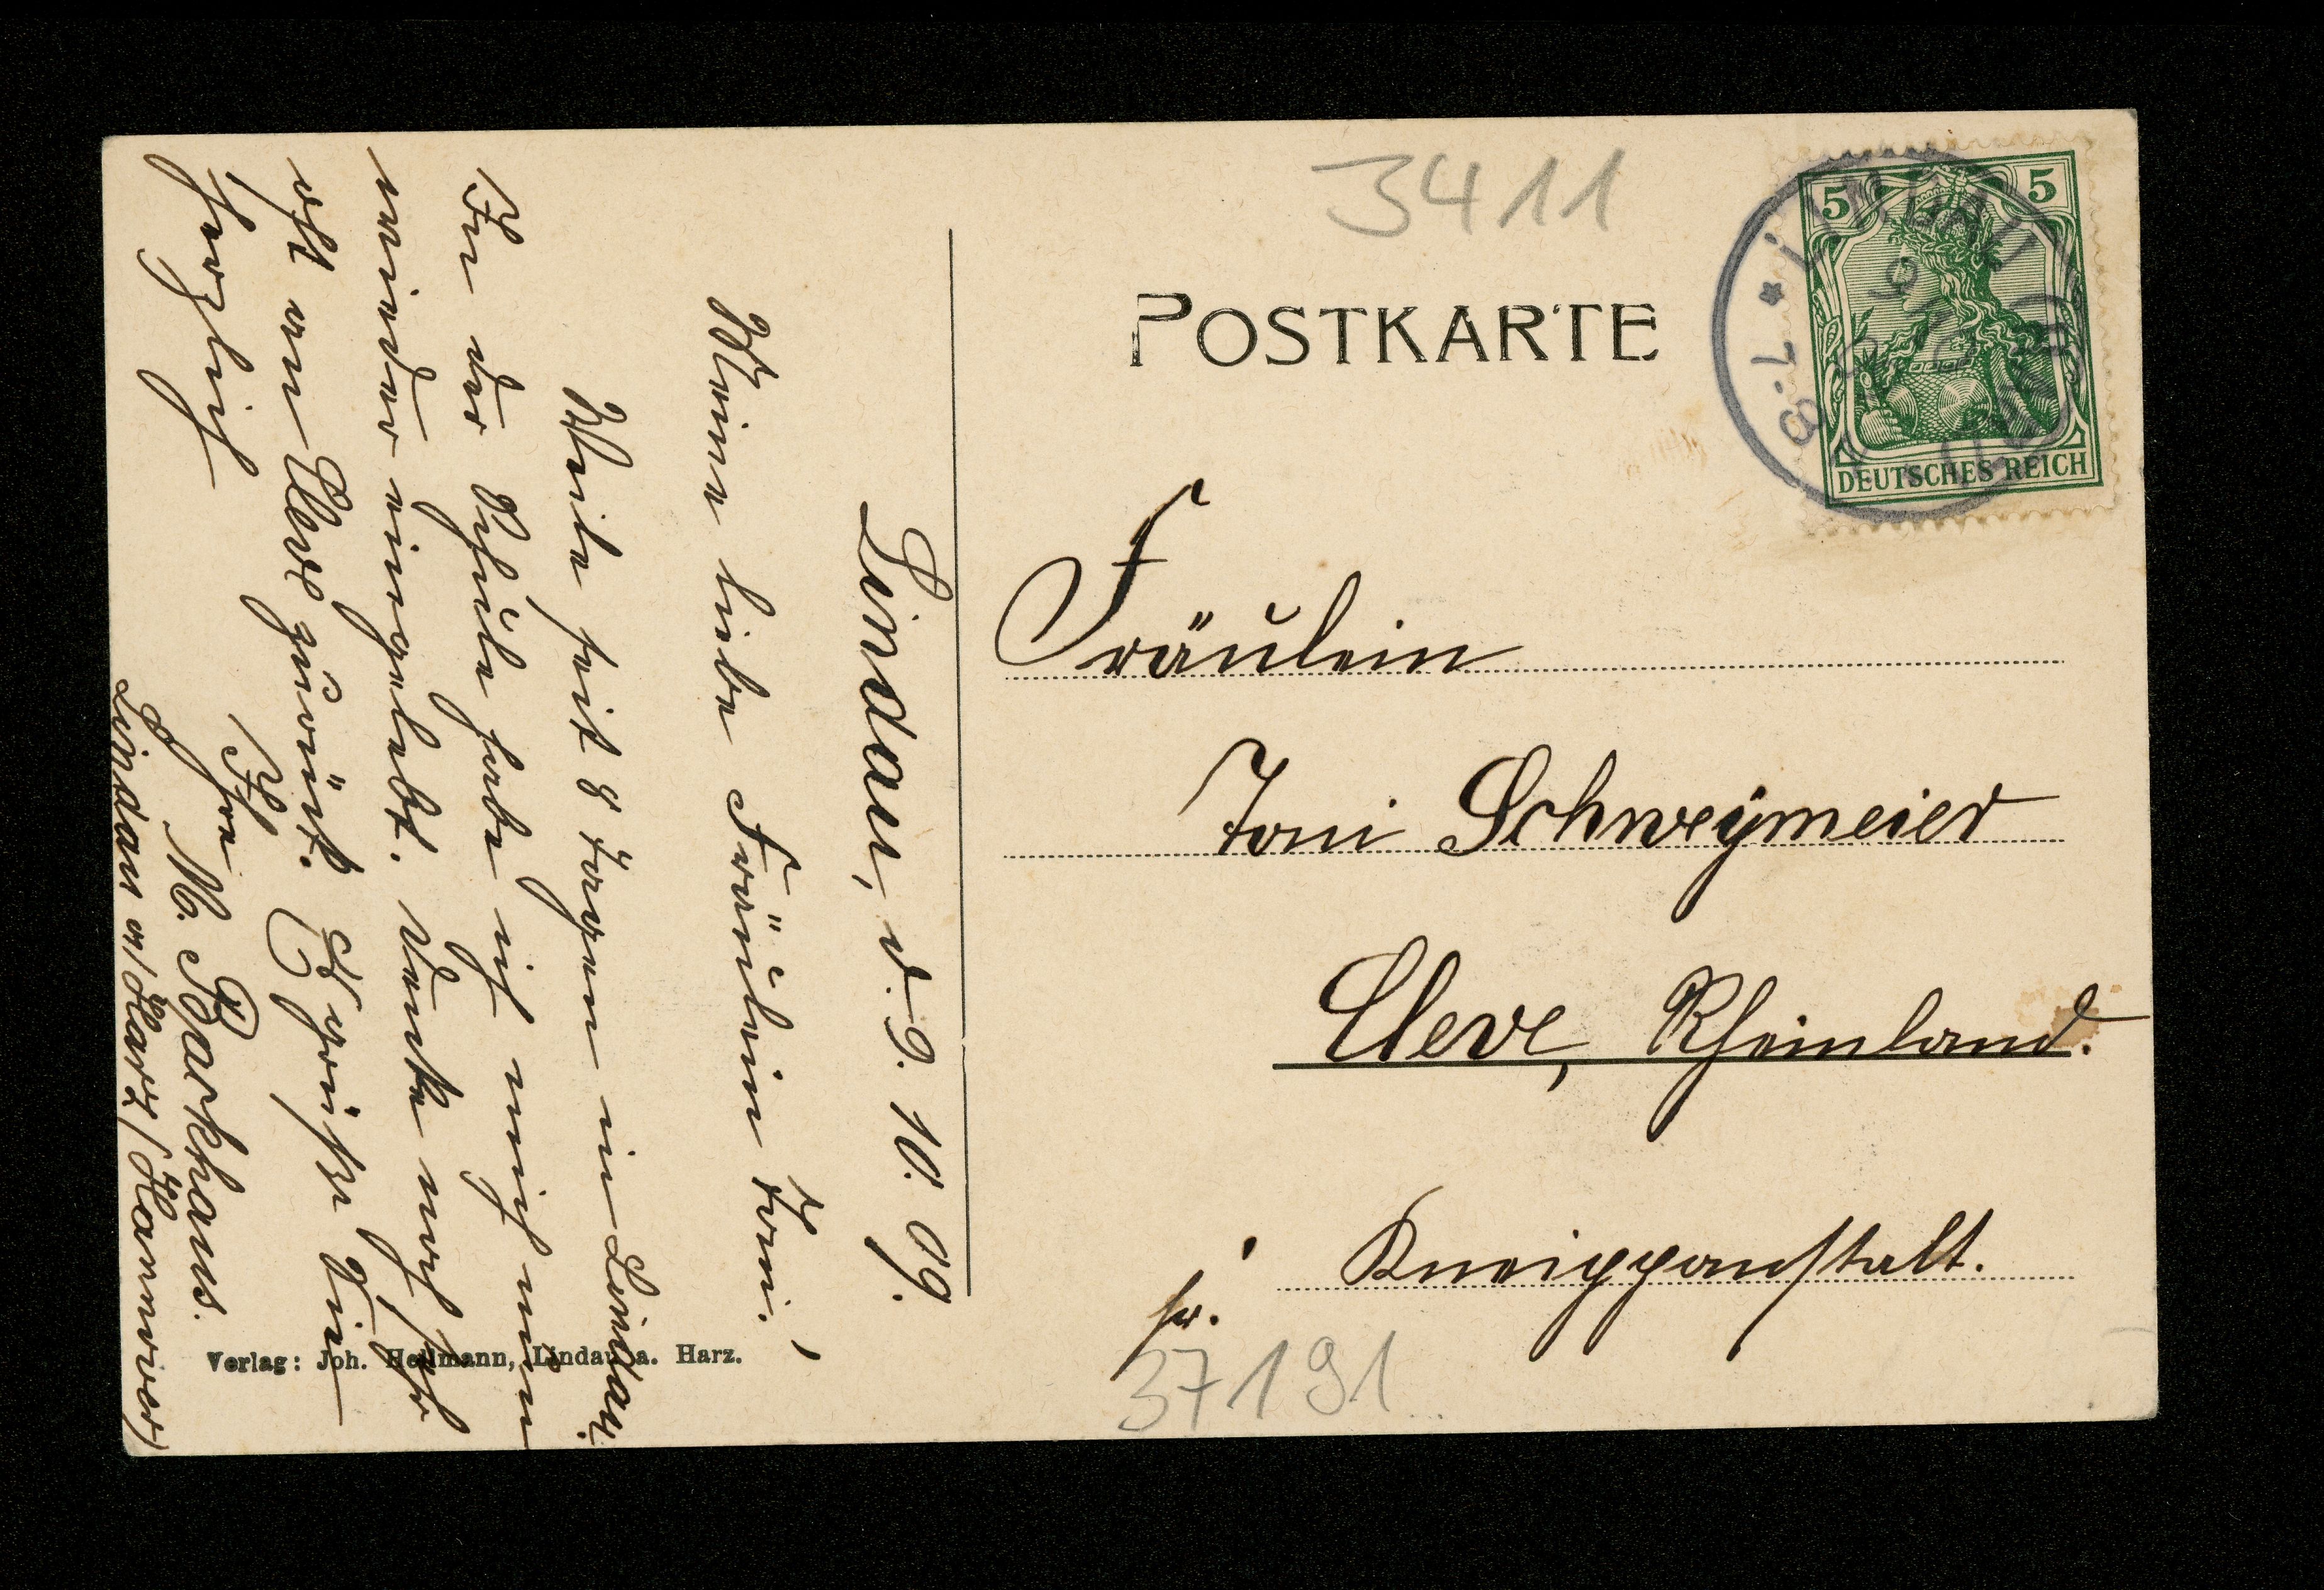 3411
POSTKARTE
5 5
DEUTSCHES REICH
LINDAU
9.10
7-8
Fräulein
Toni Schweymeier
Cleve, Rheinland.
Kneippanstalt.
fr.
37191
Lindau, d. 9. 10. 09.
Meine liebe Fräulein Toni!
Weile seit 8 Tagen in Lindau.
In der Schule habe ich mich nun
wieder eingelebt. Denke noch sehr
oft an Cleve zurück. Es grüßt Sie
herzlich
Ihre M. Barkhaus.
Lindau a/Harz (Hannover)
Verlag: Joh. Hellmann, Lindau a. Harz.